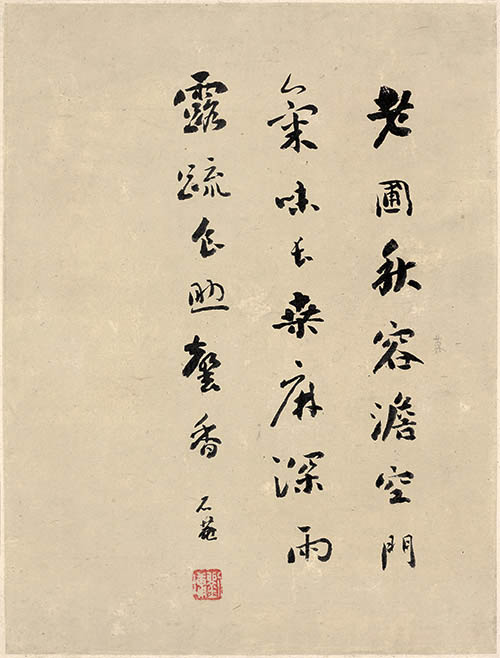 老圃秋容澹空門
氣味長桑麻深雨
露蹤食馨香
石菴